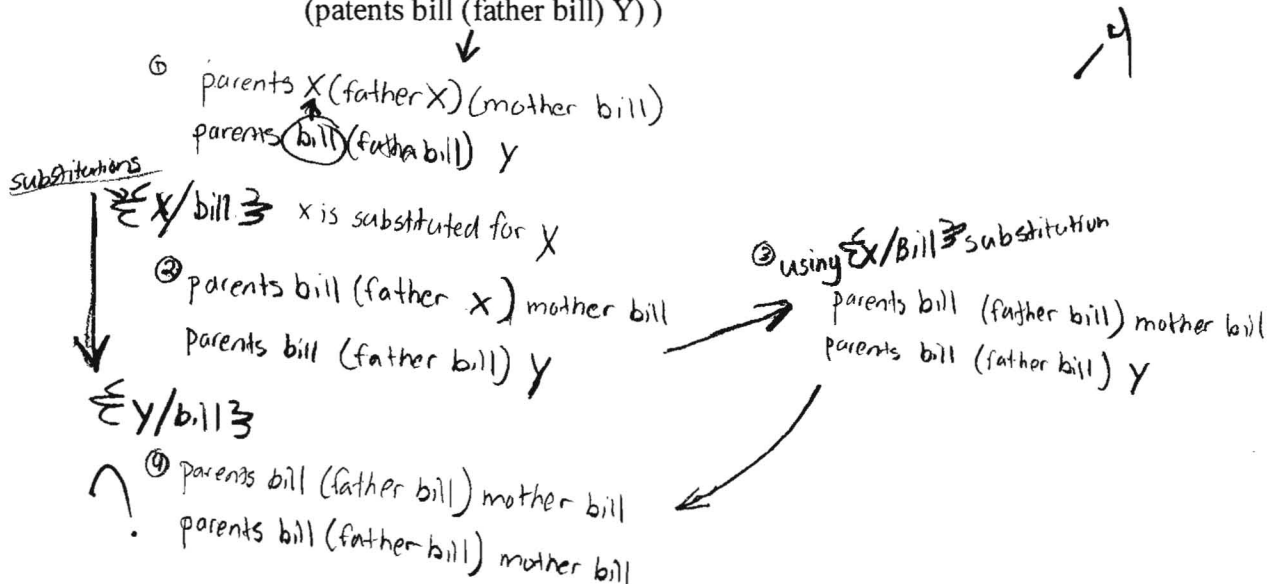 (patents bill (father bill) Y) )
① parents X (father X) (mother bill)
parents bill (fatha bill) Y
substitutions
{X/bill} x is substituted for X
② parents bill (father X) mother bill
parents bill (father bill) Y
③ using {X/Bill} substitution
parents bill (father bill) mother bill
parents bill (father bill) Y
{Y/bill}
④ parents bill (father bill) mother bill
parents bill (father bill) mother bill
?